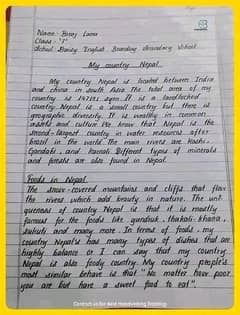 Name: Biraj Lama
Class - "7"
School: Daisy English Boarding Secondary School
My country Nepal
My country Nepal is located between India
and china in south Asia. The total area of my
country is 147181 sqm. It is a landlocked
country. Nepal is a small country but there is
geographic diversity. It is wealthy in common
assets and culture. We know that Nepal is the
second-largest country in water resources after
brazil in the world. The main rivers are Koshi,
Gandaki, and Karnali. Different types of minerals
and forests are also found in Nepal.
Foods in Nepal
The snow-covered mountains and cliffs that flow
the rivers which add beauty in nature. The uni-
queness of country Nepal is that it is mostly
famous for the foods like gundruk, thakali khana,
sukuti, and many more. In terms of foods, my
country Nepal's has many types of dishes that are
highly balance or I can say that my country
Nepal is also foody country. My country people's
most similar behave is that "No matter how poor
you are but have a sweet food to eat".
Contact us for Best Handwriting Training